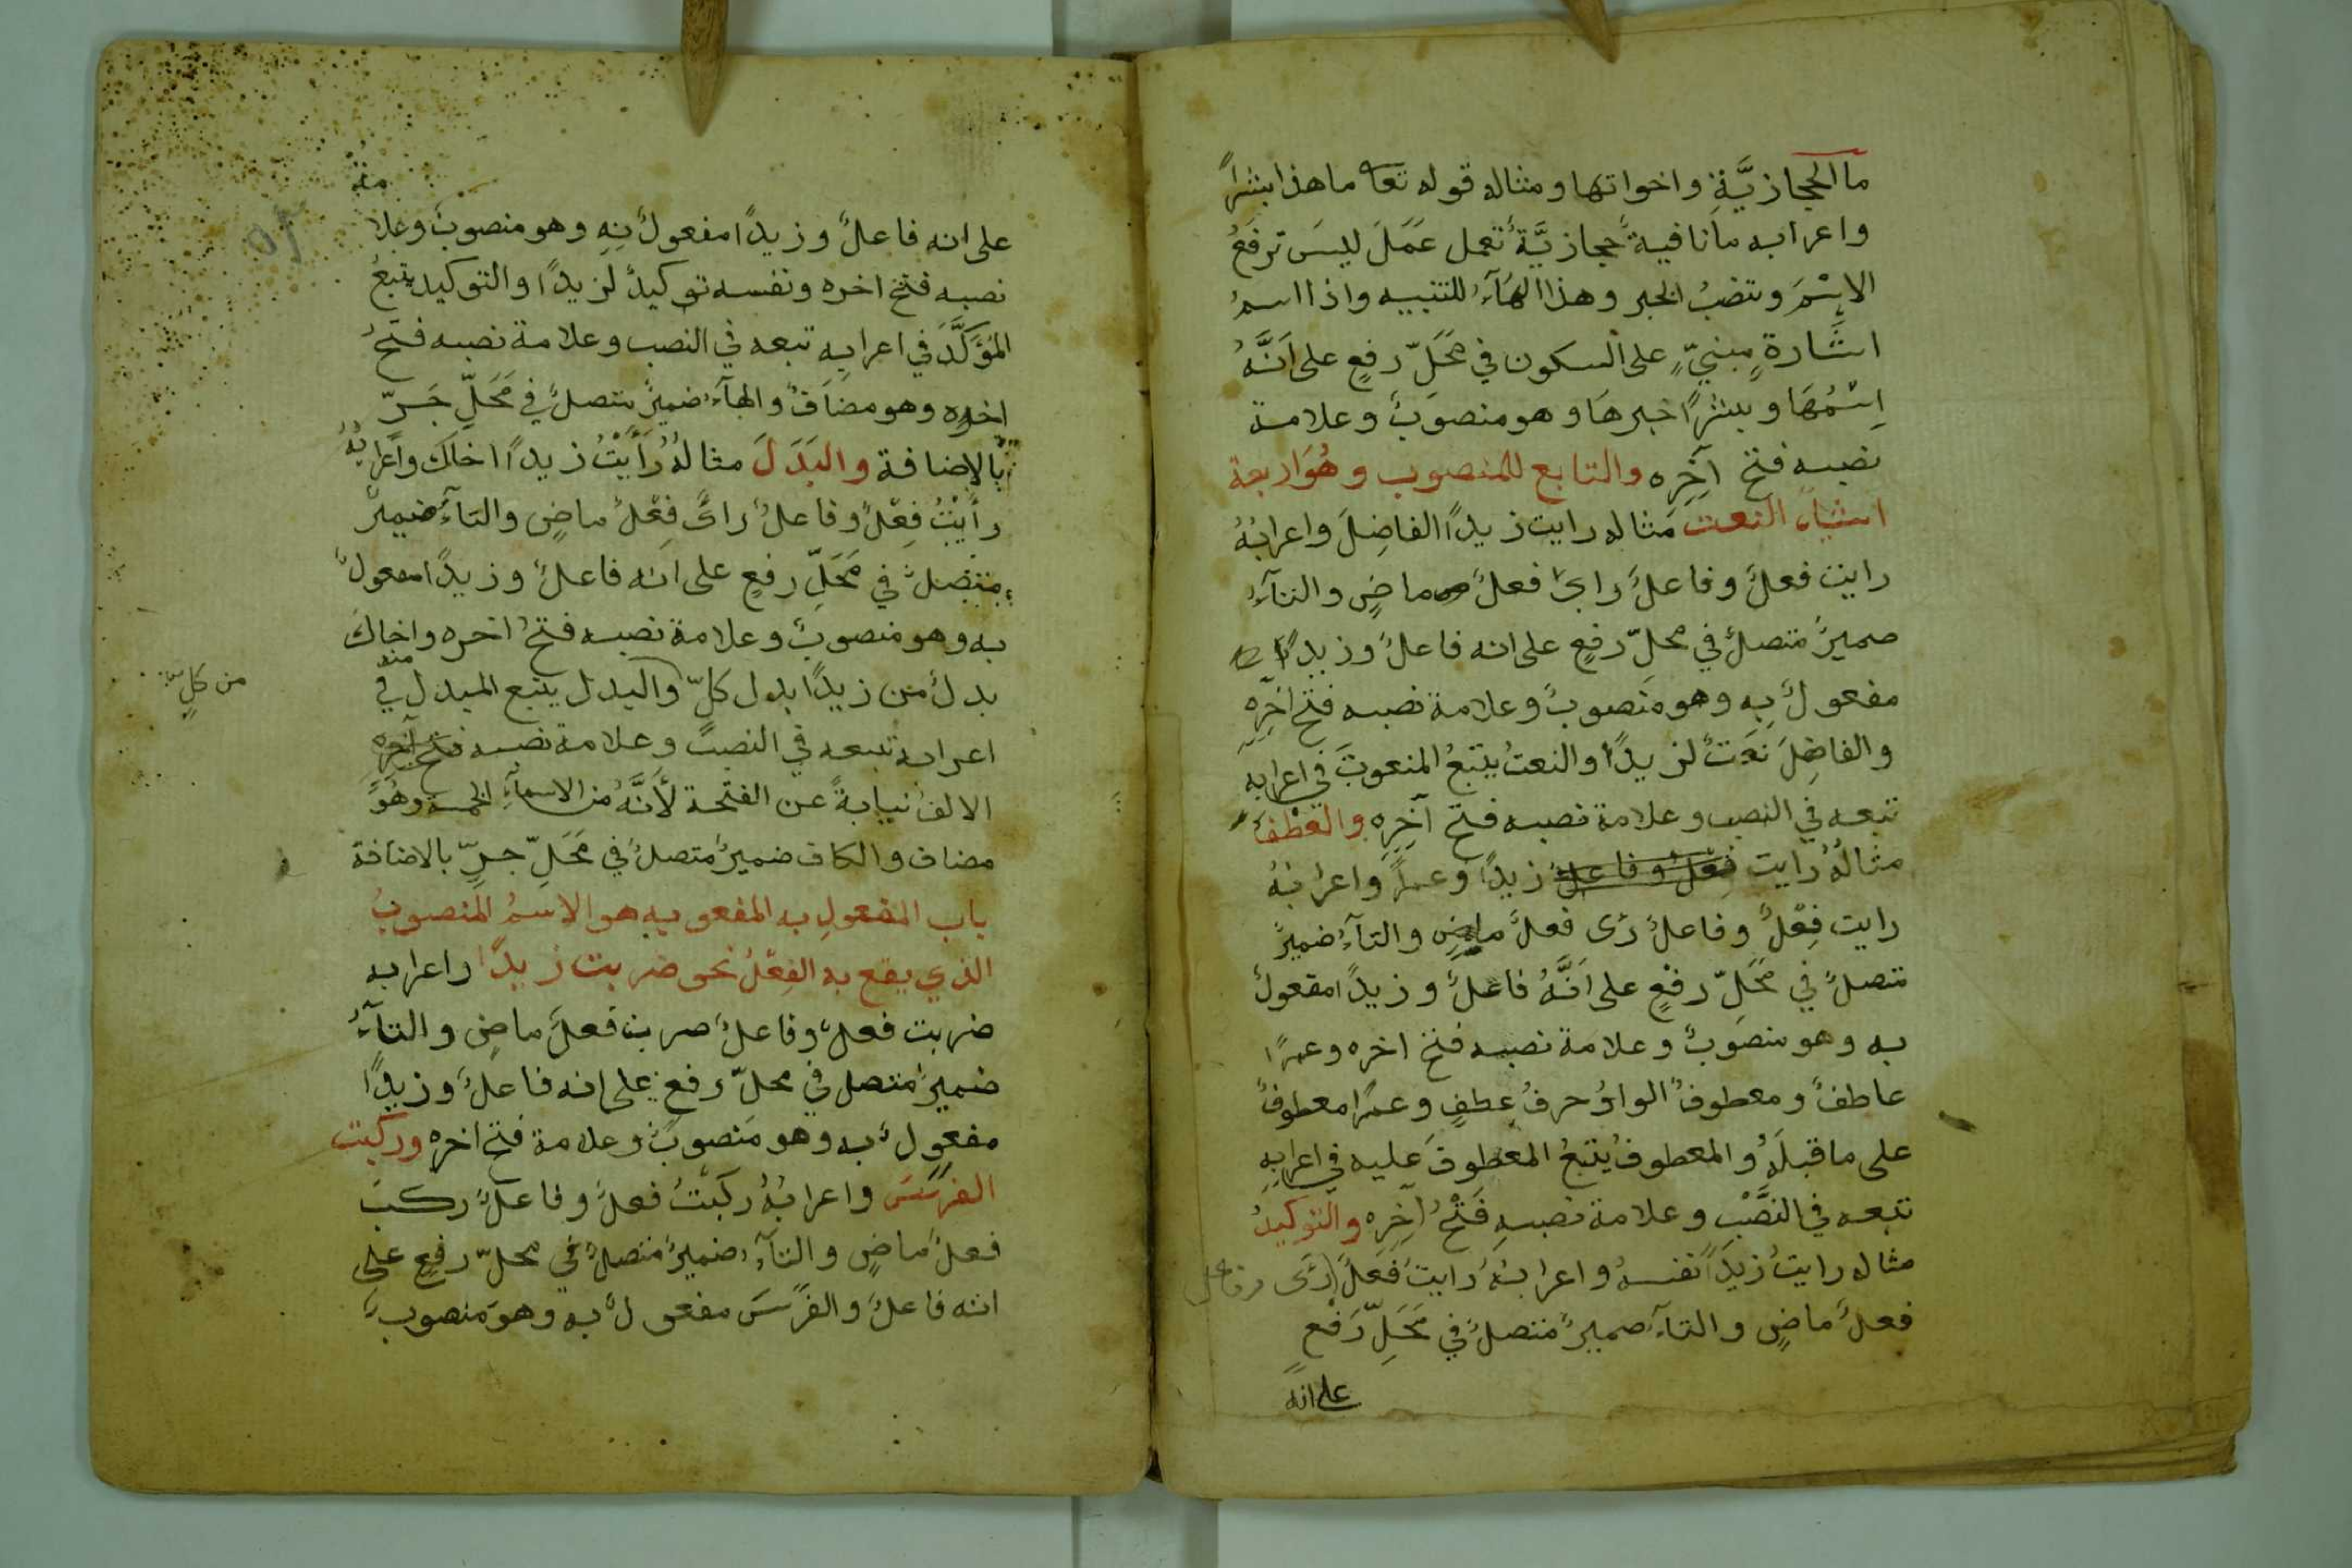 ما الحجازيَّةِ واخواتها ومثاله قوله تعا ما هذا بشراً
واعرابه ما نافيةٌ حجازيَّةٌ تعمل عَمَلَ ليسَ ترفَعُ
الاِسْمَ وتنصبُ الخبر وهذا الهَآءُ للتنبيه واذا اسمُ
اشَارةٍ مبنيٍّ على السكون في مَحَلِّ رفعٍ على اَنَّهُ
اِسْمُهَا وبشراً خبرهَا وهو منصوبٌ وعلامة
نصبه فتح آخِرِه والتابع للمنصوب وهُوَ اربعة
اشياء النعت مثاله رايت زيداً الفاضِلَ واعرابُهُ
رايت فعلٌ وفاعلٌ راىَ فعلٌ ماضٍ والتآءُ
ضميرٌ متصلٌ في محلِّ رفعٍ على انه فاعلٌ وزيداً
مفعولٌ بِهِ وهو منصوبٌ وعلامة نصبه فتح آخِرِهِ
والفاضِلَ نعَتٌ لزيداً والنعتُ يتبعُ المنعوتَ في اعرابِهِ
تبعه في النصب وعلامة نصبه فتح آخِرِهِ والعَطْفُ
مثالُهُ رايت فِعْلٌ وفاعلٌ زيداً وعمراً واعرابُهُ
رايت فِعْلٌ وفاعلٌ رَى فعلٌ ماضٍ والتآءُ ضميرٌ
متصلٌ في مَحَلِّ رفعٍ على اَنَّهُ فاعلٌ وزيداً مفعولٌ
به وهو منصوبٌ وعلامة نصبه فتح اخره وعمراً
عاطفٌ ومعطوفٌ الواوُ حرفُ عطفٍ وعمراً معطوفٌ
على ما قبلَهُ والمعطوفُ يتبعُ المعطوفَ عليه في اعرابِهِ
تبعه في النَّصْبِ وعلامة نصبِهِ فَتْحُ آخِرِه والتوكيدُ
مثاله رايتُ زيداً نفسهُ واعرابُهُ رايتُ فَعلٌ رَى وفاعل
فعلٌ ماضٍ والتآءُ ضميرٌ متصلٌ في مَحَلِّ رَفْعٍ
على انه
على انه فاعلٌ وزيداً مفعولٌ بِهِ وهو منصوبٌ وعلا
مة
نصبه فتح اخره ونفسه توكيدٌ لزيداً والتوكيد يتبعُ
المُؤكَّدَ في اعرابِهِ تبعه في النصب وعلامة نصبه فتحُ
اخرِه وهو مضافٌ والهآءُ ضميرٌ متصلٌ في مَحَلِّ جَرٍّ
بالاِضافة والبَدَلَ مثالهُ رَأيْتُ زيداً اخاكَ واعرابُهُ
رأيْتُ فِعْلٌ وفاعلٌ رأىَ فِعْلٌ ماضٍ والتآءُ ضميرٌ
متصلٌ في مَحَلِّ رفعٍ على انه فاعلٌ وزيداً مفعولٌ
به وهو منصوبٌ وعلامة نصبه فتحُ اخره واخاكَ
بدلٌ من زيداً بدل كلّ والبدل يتبع المبدل منه في
من كلٍّ
اعرابه تبعه في النصب وعلامة نصبه فتح آخِرِه
الالفُ نيابةً عن الفتحة لأَنَّهُ من الاسمآءِ الخمسة وهُوَ
مضاف والكاف ضميرٌ متصلٌ في مَحَلِّ جرٍّ بالاضافة
باب المفعولِ به المفعو به هو الاسمُ المنصوبُ
الذي يقع به الفِعْلُ نحو ضربت زيداً واعرابه
ضربت فعلٌ وفاعلٌ ضربت فعلٌ ماضٍ والتآءُ
ضميرٌ متصل في محلِّ رفعٍ على انه فاعلٌ وزيداً
مفعولٌ به وهو منصوبٌ وعلامة فتح اخره وركبت
الفرسَ واعرابُهُ ركبْتُ فعلٌ وفاعلٌ ركبَ
فعلٌ ماضٍ والتآءُ ضميرٌ متصلٌ في محلِّ رفعٍ على
انه فاعلٌ والفَرَسَ مفعولٌ به وهو منصوبٌ